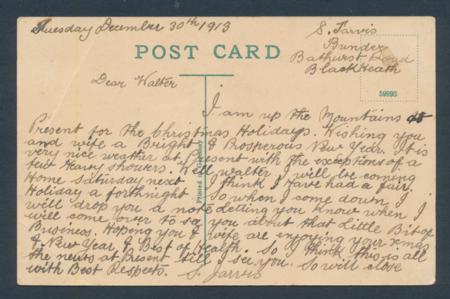 Tuesday December 30th 1913
S. Jarvis
Bundex
Bathurst Road
BlackHeath
POST CARD
59995
Dear Walter
I am up the Mountains at
Present for the Christmas Holidays. Wishing you
and wife a Bright & Prosperous New Year. It is
very nice weather at Present with the exceptions of a
few Heavy showers. Well walter I will be coming
Home Saturday next I think I Have had a fair
Holiday a fortnight So when I come down I
will drop you a note letting you know when I
will come over to see you about that Little Bit of
Business. Hoping you & wife are enjoying your xmas
& New Year & Best of Health. So I think this is all
the news at Present till I see you. So will close
with Best Respects. S. Jarvis